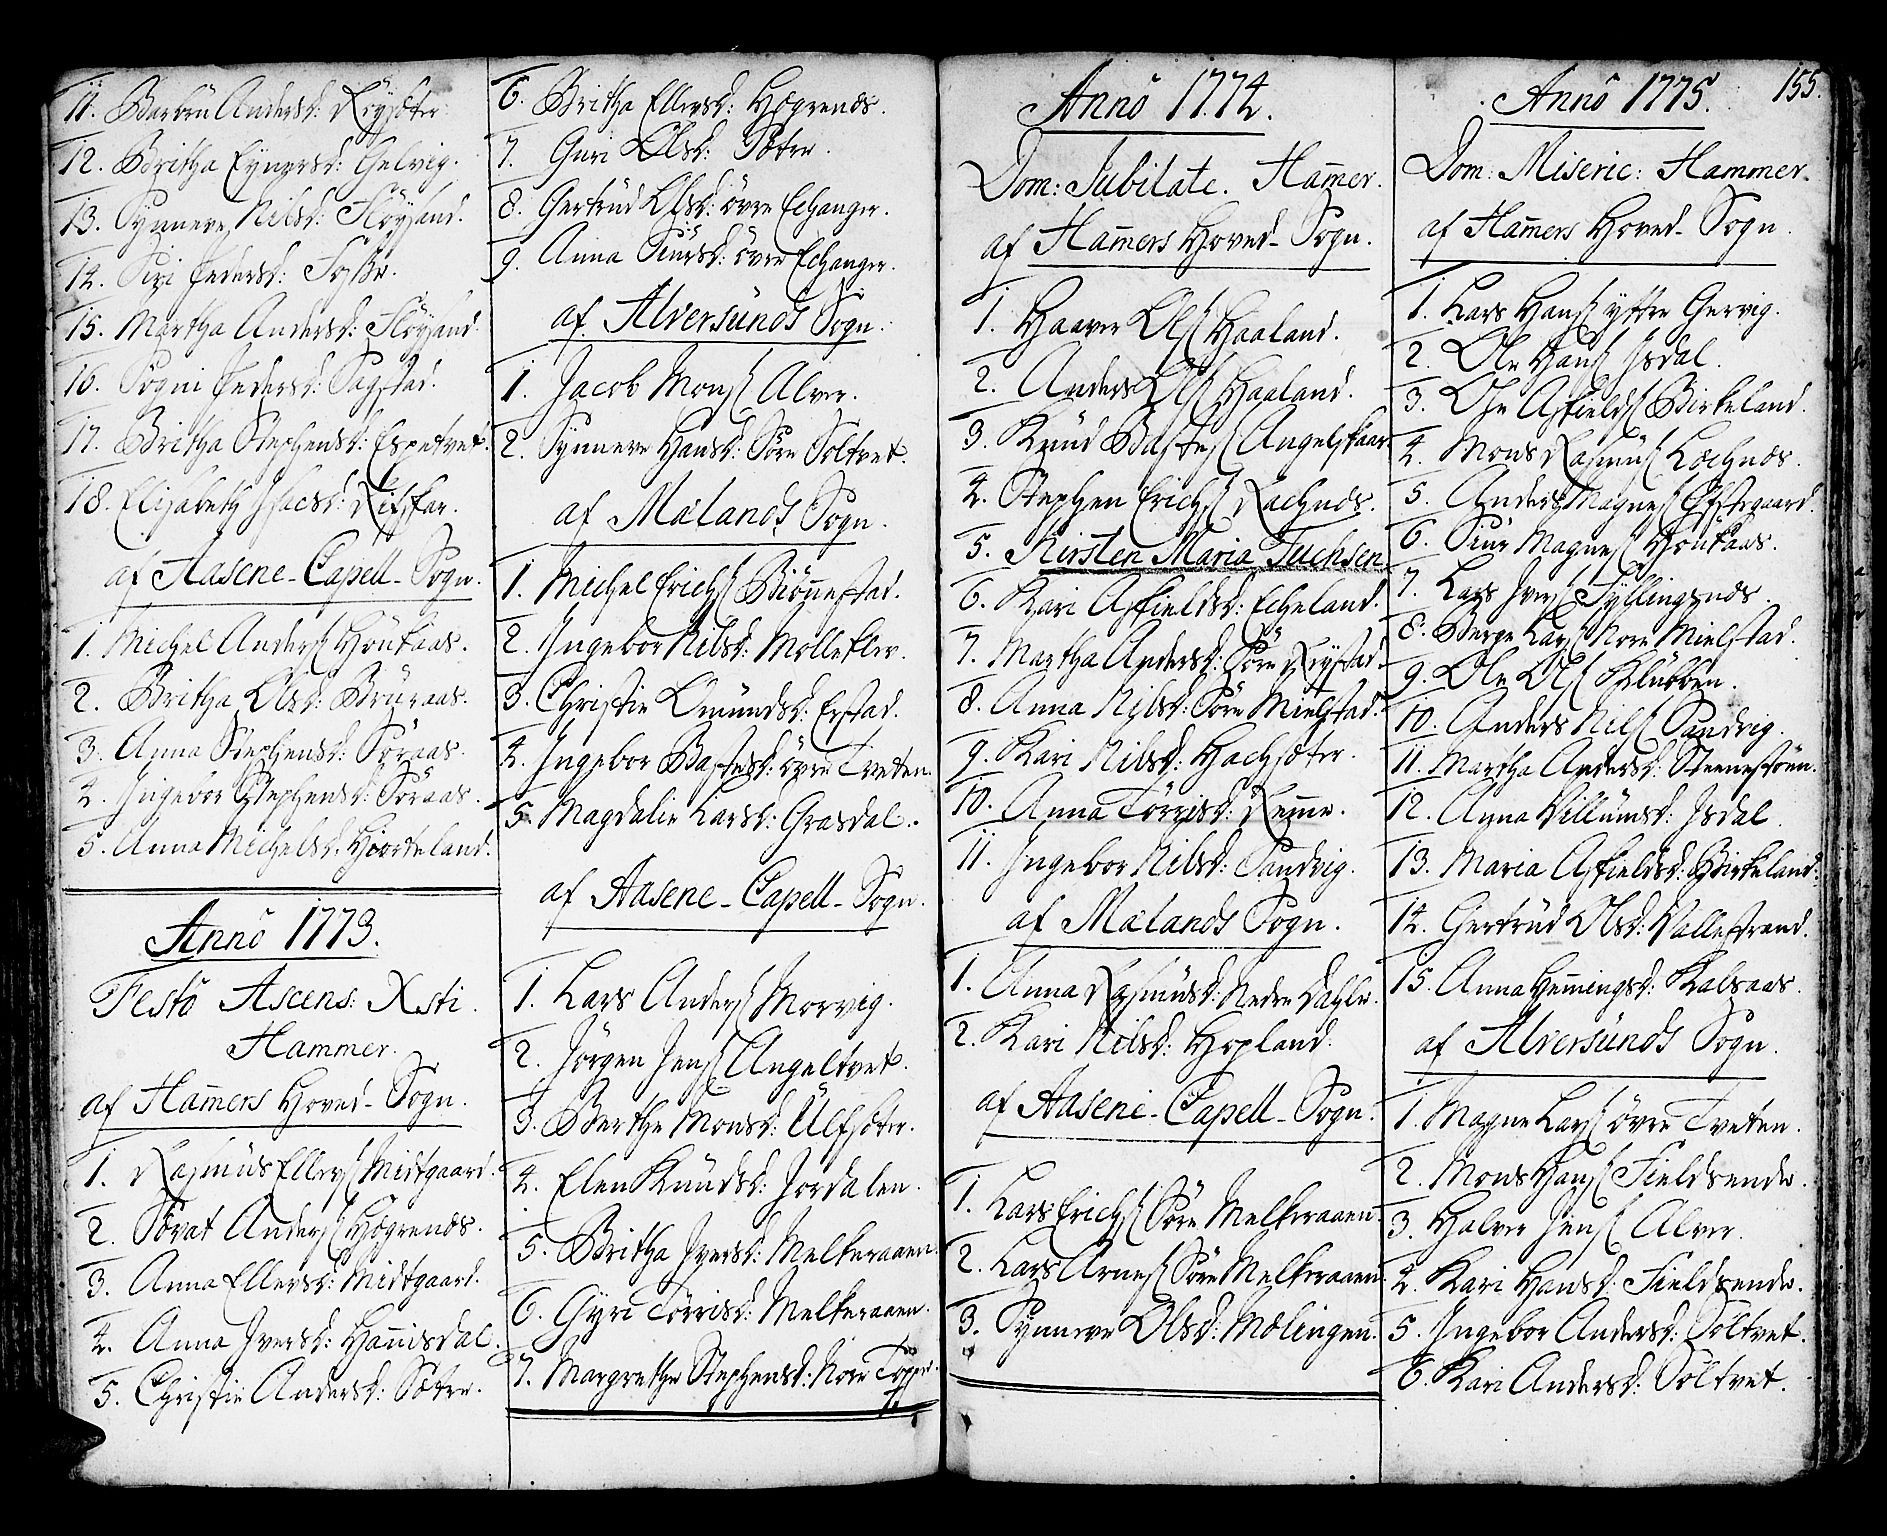 11. Barbru Andersd: Röysæter.
12. Britha Eynersd: Gelvig.
13. Synneve Nilsd: Flöysand.
14. Siri Pedersd: Fosse.
15. Martha Andersd: Flöysand
16. Sogni Pedersd: Sagstad.
17. Britha Stephensd: Espetvet.
18. Elisabeth Isacsd: Rifskar.
af Aasene-Capell-Sogn.
1. Michel Anders: Höukaas.
2. Britha Olsd: Bruraas.
3. Anna Stephensd: Söraas.
4. Ingebor Stephensd: Söraas.
5. Anna Michelsd. Hiorteland.
Anno 1773.
Festo Ascens: Xsti.
Hammer.
af Ham̄ers Hoved-Sogn.
1. Rasmus Ellers: Midtgaard.
2. Sövat Anders: Högrenæs.
3. Anna Ellersd: Midtgaard.
4. Anna Iversd: Han̄isdal.
5. Christie Andersd: Sætre.
6. Britha Ellersd: Högrenæs.
7. Guri Olsd: Sætre.
8. Gertrud Olsd: övre Echanger.
9. Anna Siursd: övre Echanger.
af Alversunds Sogn.
1. Jacob Mons: Alver.
2. Synneve Hansd: Söre Soltvet.
af Mælands Sogn.
1. Michel Erichs: Biön̄estad.
2. Ingebor Nilsd: Mollekler.
3. Christie Omundsd: Erstad.
4. Ingebor Bastesd: övre Tveten.
5. Magdalie Larsd: Grasdal.
af Aasene-Capell-Sogn.
1. Lars Anders: Morvig.
2. Jörgen Jens: Angeltvet.
3. Berthe Monsd: Ulfsæter.
4. Elen Knudsd: Jordalen.
5. Britha Iversd: Melkeraaen.
6. Gyri Törrisd: Melkeraaen.
7. Margrethe Stephensd: Nore Toppe.
Anno 1774.
Dom: Jubilate. Ham̄er.
af Ham̄ers Hoved-Sogn.
1. Haaver Ols: Haaland.
2. Anders Ols: Haaland.
3. Knud Bastes: Angelskaar
4. Stephen Erichs: Rachnæs.
5. Kirsten Maria Fuchsen
6. Kari Asfieldsd: Echeland.
7. Martha Andersd: Söre Röystad.
8. Anna Nilsd: Söre Mielstad.
9. Kari Nilsd: Hachsæter.
10. Anna Törrisd: Rem̄e.
11. Ingebor Nilsd: Sandvig.
af Mælands Sogn.
1. Anna Rasmusd: Nedre Dahle.
2. Kari Nilsd: Hopland.
af Aasene-Capell-Sogn.
1. Lars Erichs: Söre Melkeraaen.
2. Lars Arnes: Söre Melkeraaen.
3. Synneve Olsd: Mælingen.
155.
Anno 1775.
Dom: Miseric: Hammer.
af Ham̄ers Hoved-Sogn.
1. Lars Hans: yttre Gervig.
2. Ole Hans: Isdal.
3. Ole Asfields: Birkeland.
4. Mons Rasmus: Lochnæs.
5. Anders Magnes: Öfstegaard.
6. Siur Magnes: Höukaas.
7. Lars Ivers: Fyllingsnæs.
8. Berge Lars: Nore Mielstad.
9. Ole Ols: Klubben.
10. Anders Nils: Sandvig.
11. Martha Andersd: Steenestöen.
12. Anna Villumsd: Isdal
13. Maria Asfieldsd: Birkeland.
14. Gertrud Olsd: Vallestrand.
15. Anna Hem̄ingsd: Kalsaas.
af Alversunds Sogn.
1. Magne Lars: övre Tveten.
2. Mons Hans: Fieldsende.
3. Halver Jens: Alver.
4. Kari Hansd: Fieldsende.
5. Ingebor Andersd: Soltvet.
6. Kari Andersd: Soltvet.